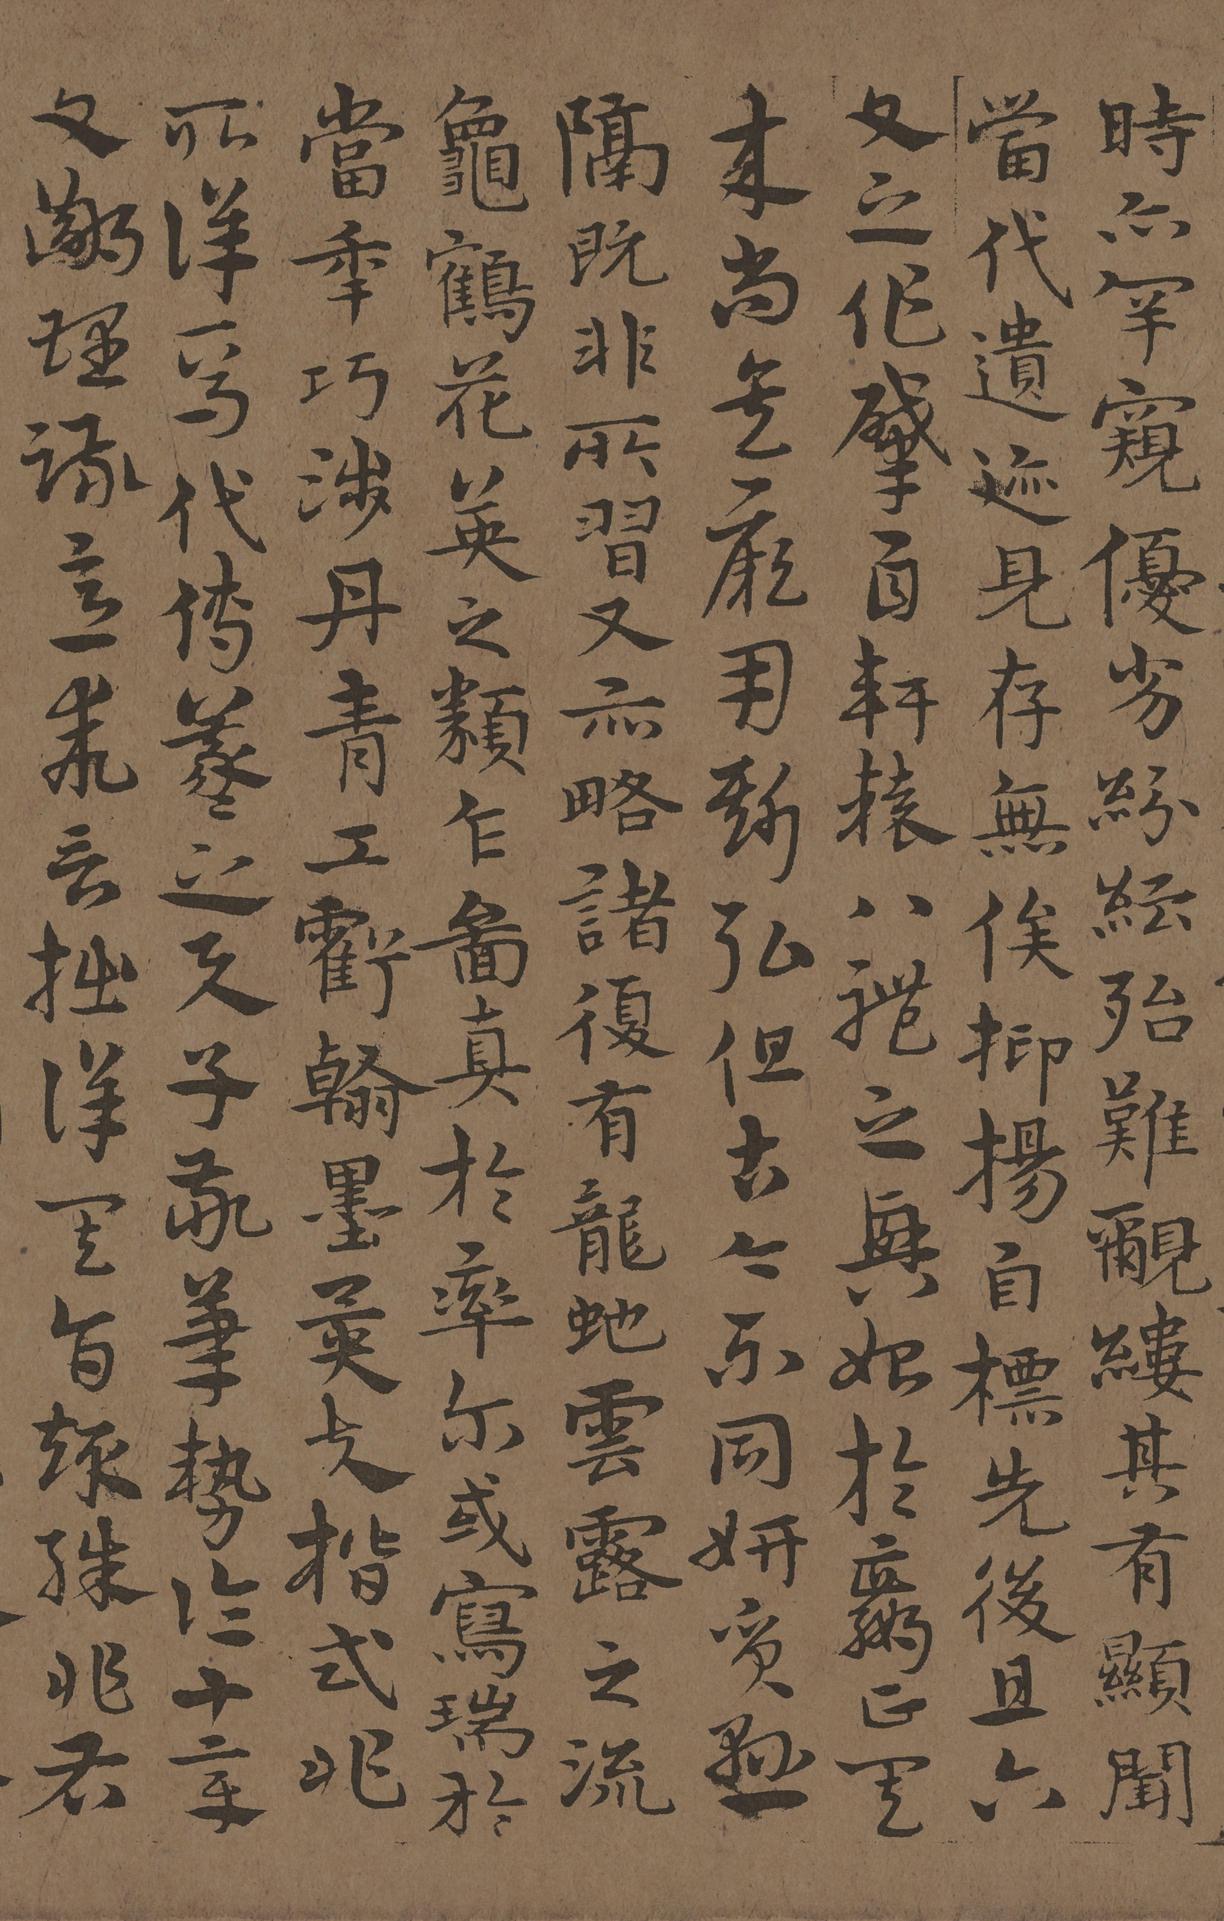 時亦罕窺優劣紛紜殆難覼縷其有顯聞
當代遺迹見存無俟抑揚自標先後且六
文之作肇自軒轅八體之興始於嬴正其
来尚矣厥用斯弘但古今不同妍質懸
隔既非所習又亦略諸復有龍蛇雲露之流
龜鶴花英之類乍圖真於率尔或寫瑞於
當年巧涉丹青工虧翰墨異夫楷式非
所詳焉代傳羲之与子敬筆勢論十章
文鄙理疎意乖言拙詳其旨趣殊非右